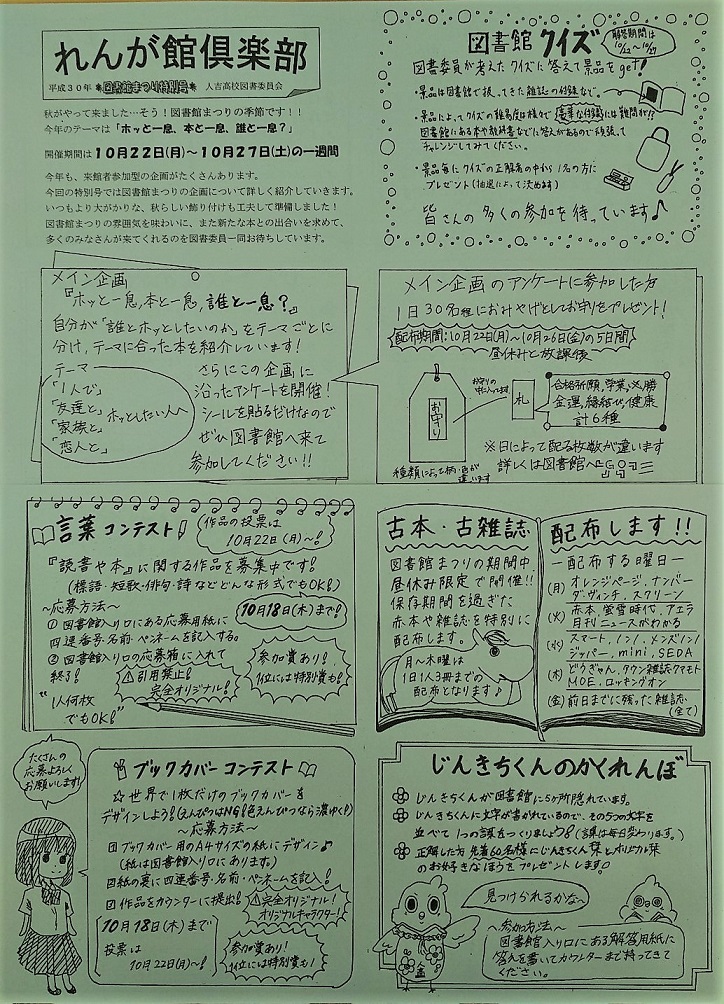 れんが館倶楽部
平成30年 図書館まつり特別号 人吉高校図書委員会
秋がやって来ました…そう！図書館まつりの季節です！！
今年のテーマは「ホッと一息、本と一息、誰と一息？」
開催期間は10月22日(月)～10月27日(土)の一週間
今年も、来館者参加型の企画がたくさんあります。
今回の特別号では図書館まつりの企画について詳しく紹介していきます。
いつもより大がかりな、秋らしい飾り付けも工夫して準備しました！
図書館まつりの雰囲気を味わいに、また新たな本との出合いを求めて、
多くのみなさんが来てくれるのを図書委員一同お待ちしています。
図書館クイズ
解答期間は
10/22～10/27
図書委員が考えたクイズに答えて景品をget!
・景品は図書館で扱ってきた雑誌の付録など。
・景品によってクイズの難易度は様々で豪華な付録には難問が!!
図書館にある本や教科書などに答えがあるので頑張って
チャレンジしてみてください。
・景品毎にクイズの正解者の中から1名の方に
プレゼント(抽選によって決めます)
皆さんの多くの参加を待っています♪
メイン企画
『ホッと一息,本と一息,誰と一息？』
自分が「誰とホッとしたいのか」をテーマごとに
分け,テーマに合った本を紹介しています！
テーマ
「1人で」
「友達と」
「家族と」
「恋人と」
ホッとしたい人へ
さらにこの企画に
沿ったアンケートを開催！
シールを貼るだけなので
ぜひ図書館へ来て
参加してください!!
メイン企画のアンケートに参加した方
1日30名程におみやげとしてお守りをプレゼント！
配布期間:10月22日(月)～10月26日(金)の5日間
昼休みと放課後
お守り
お守りの
中に入ってます
札
合格祈願,学業,必勝
金運,縁結び,健康
計6種
種類によって柄・色が
違います
※日によって配る枚数が違います
詳しくは図書館へGO
言葉コンテスト
作品の投票は
10月22日(月)～！
『読書や本』に関する作品を募集中です！
(標語・短歌・俳句・詩などどんな形式でもOK!)
～応募方法～
10月18日(木)まで！
①図書館入り口にある応募用紙に
四連番号・名前・ペンネームを記入する。
②図書館入り口の応募箱に入れて
終了！
⚠引用禁止！
完全オリジナル！
参加賞あり！
1位には特別賞も！
"1人何枚
でもOK!"
古本・古雑誌
図書館まつりの期間中
昼休み限定で開催!!
保存期間を過ぎた
赤本や雑誌を特別に
配布します。
月～木曜は
1日1人3冊までの
配布となります♪
配布します!!
―配布する曜日―
(月)オレンジページ,ナンバー
ダ・ヴィンチ,スクリーン
(火)赤本,螢雪時代,アエラ
月刊ニュースがわかる
(水)スマート,ノンノ,メンズノンノ
ジッパー,mini,SEDA
(木)どうぎゅん,タウン雑誌クマモト
MOE,ロッキングオン
(金)前日までに残った雑誌
(全て)
たくさんの
応募よろしく
お願いします！
ブックカバーコンテスト
☆世界で1枚だけのブックカバーを
デザインしよう！(えんぴつはNG!色えんぴつなら濃ゆく!)
～応募方法～
1 ブックカバー用のA4サイズの紙にデザイン♪
(紙は図書館入り口にあります。)
2 紙の裏に四連番号・名前・ペンネームを記入！
3 作品をカウンターに提出！
⚠完全オリジナル！
オリジナルキャラクター！
10月18日(木)まで
投票は
10月22日(月)～！
参加賞あり！
1位には特別賞も！
じんきちくんのかくれんぼ
じんきちくんが図書館に5ヶ所隠れています。
じんきちくんに文字が書かれているので,その5つの文字を
並べて1つの言葉をつくりましょう！(言葉は毎日変わります。)
正解した方先着60名様にじんきちくん栞とオリジナル栞
のお好きなほうをプレゼントします♪
見つけられるかな～
～参加方法～
図書館入り口にある解答用紙に
答えを書いてカウンターまで持ってきて
ください。